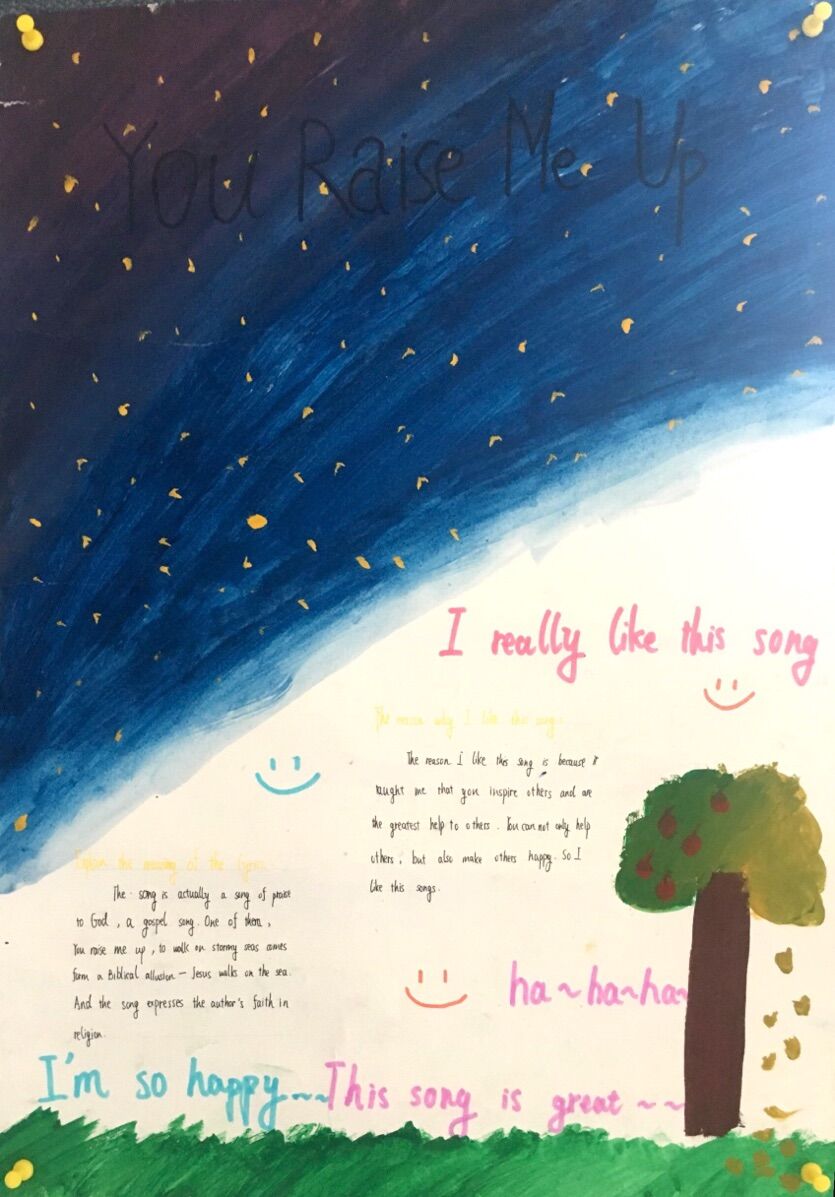 You Raise Me Up
I really like this song
The reason why I like this song:
The reason I like this song is because it
taught me that you inspire others and are
the greatest help to others. You can not only help
others, but also make others happy. So I
like this songs.
Explain the meaning of the lyrics
The song is actually a song of praise
to God, a gospel song. One of them,
You raise me up, to walk on stormy seas comes
form a Biblical allusion — Jesus walks on the sea.
And the song expresses the author's faith in
religion.
ha~ha~ha~
I'm so happy~~This song is great~~